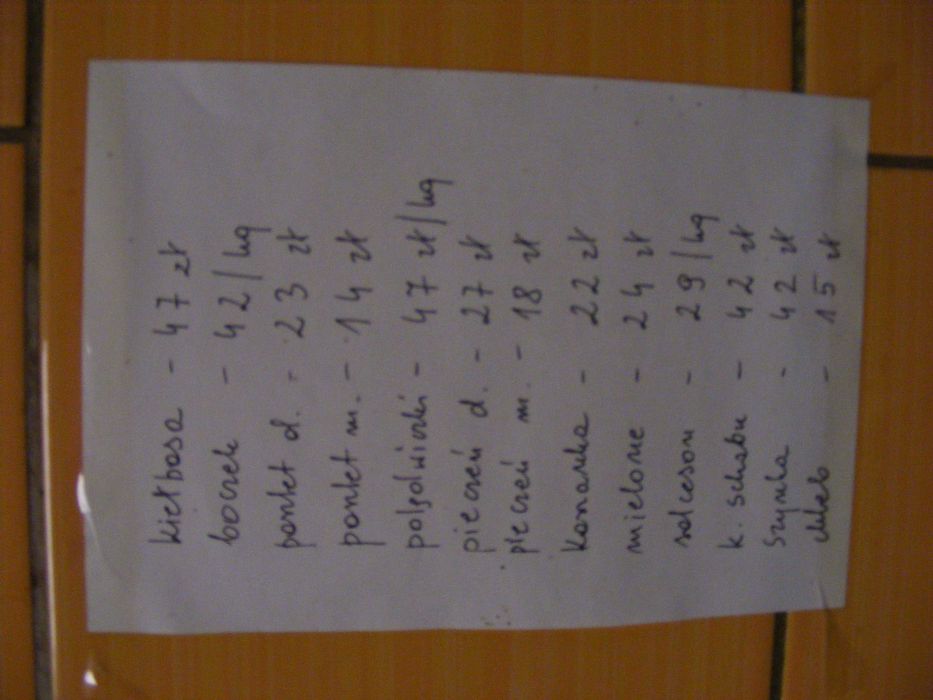 kiełbasa - 47 zł
boczek - 42/kg
pasztet d. - 23 zł
pasztet m. - 14 zł
polędwiczki - 47 zł/kg
pieczeń d. - 27 zł
pieczeń m. - 18 zł
kaszanka - 22 zł
mielone - 24 zł
salceson - 29/kg
k. schabu - 42 zł
szynka - 42 zł
chleb - 15 zł